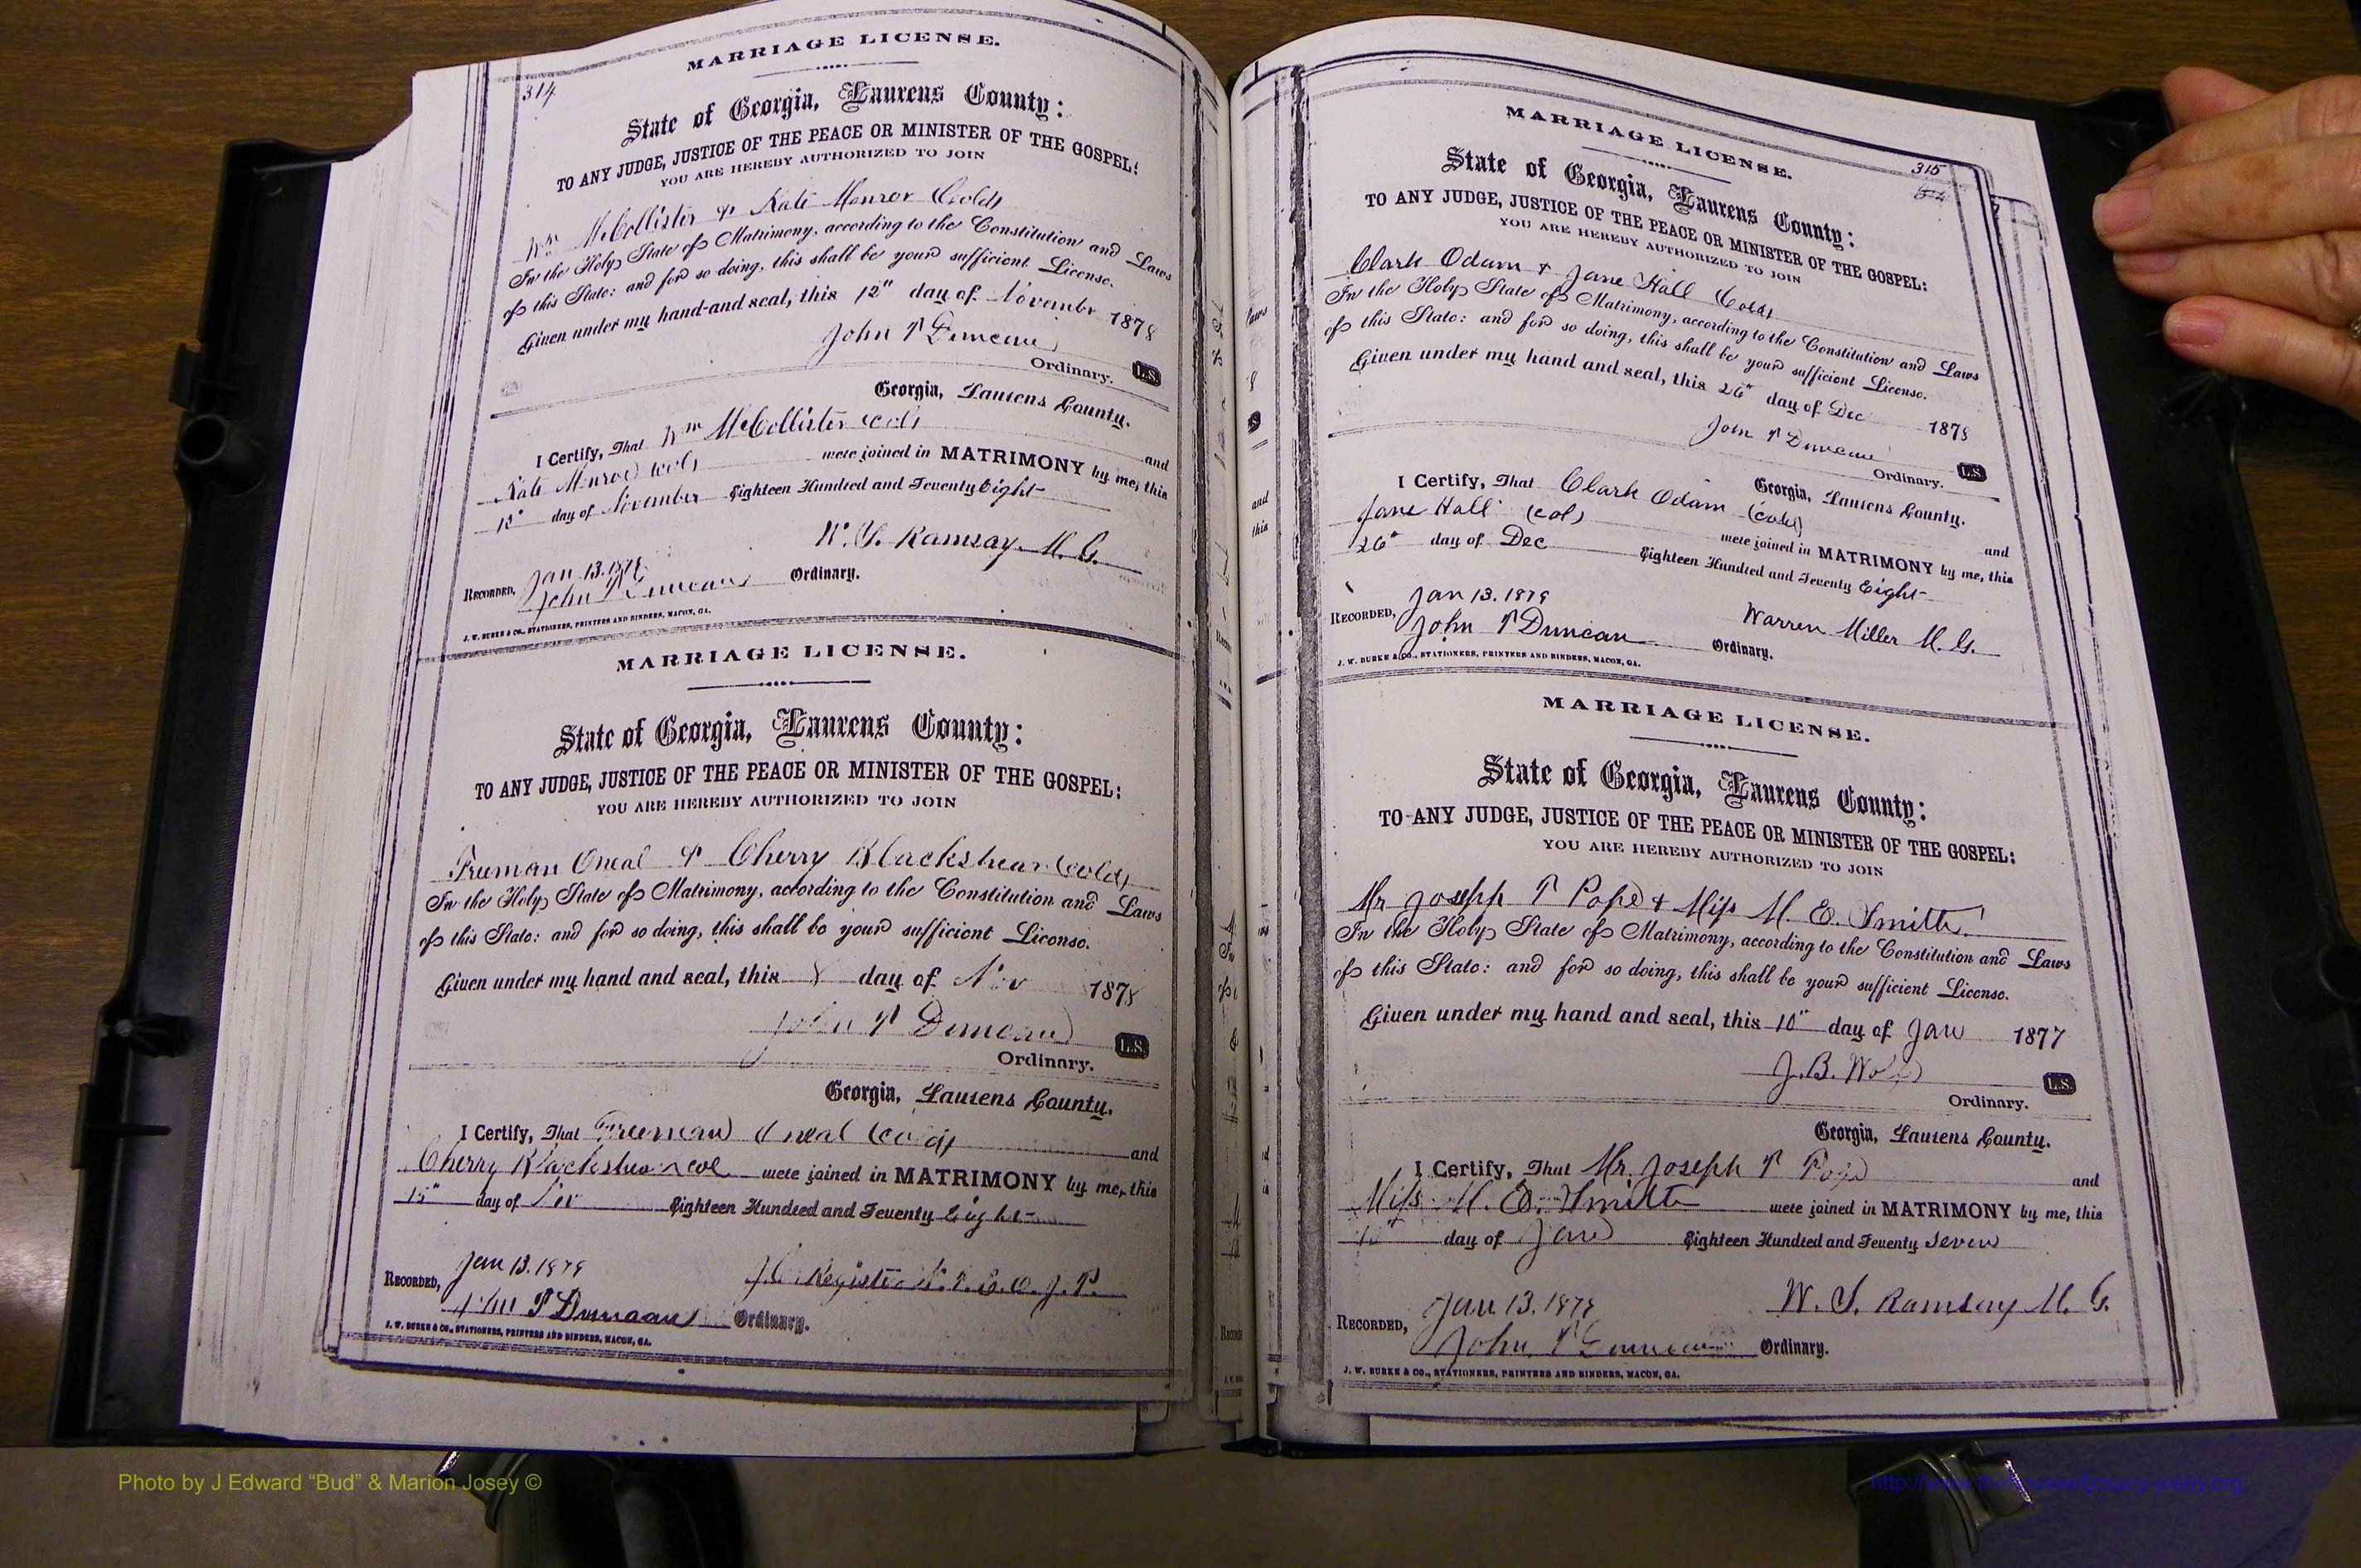 MARRIAGE LICENSE.
314
State of Georgia, Laurens County:
TO ANY JUDGE, JUSTICE OF THE PEACE OR MINISTER OF THE GOSPEL:
YOU ARE HEREBY AUTHORIZED TO JOIN
Wm McCollister & Kate Monroe (Cold)
In the Holy State of Matrimony, according to the Constitution and Laws
of this State: and for so doing, this shall be your sufficient License.
Given under my hand and seal, this 12" day of November 1878
John T Duncan
Ordinary. L.S.
Georgia, Laurens County.
I Certify, That Wm McCollister (col) and
Kate Monroe (col) were joined in MATRIMONY by me, this
day of November Eighteen Hundred and Seventy Eight
W. S. Ramsay M. G.
RECORDED, Jan 13. 1879
John T Duncan Ordinary.
J. W. BURKE & CO., STATIONERS, PRINTERS AND BINDERS, MACON, GA.
MARRIAGE LICENSE.
State of Georgia, Laurens County:
TO ANY JUDGE, JUSTICE OF THE PEACE OR MINISTER OF THE GOSPEL:
YOU ARE HEREBY AUTHORIZED TO JOIN
Freeman Oneal & Cherry Blackshear (cold)
In the Holy State of Matrimony, according to the Constitution and Laws
of this State: and for so doing, this shall be your sufficient License.
Given under my hand and seal, this 8 day of Nov 1878
John T Duncan
L.S.
Ordinary.
Georgia, Laurens County.
I Certify, That Freeman Oneal (cold) and
Cherry Blackshear col were joined in MATRIMONY by me, this
15" day of Nov Eighteen Hundred and Seventy Eight
Jan 13. 1879
RECORDED, J. C. Register N. P. & Ex. O. J. P.
John T Duncan Ordinary.
J. W. BURKE & CO., STATIONERS, PRINTERS AND BINDERS, MACON, GA.
MARRIAGE LICENSE.
315
State of Georgia, Laurens County:
TO ANY JUDGE, JUSTICE OF THE PEACE OR MINISTER OF THE GOSPEL:
YOU ARE HEREBY AUTHORIZED TO JOIN
Clark Odam & Jane Hall (Cold)
In the Holy State of Matrimony, according to the Constitution and Laws
of this State: and for so doing, this shall be your sufficient License.
Given under my hand and seal, this 26" day of Dec 1878
John T Duncan
Ordinary. L.S.
Georgia, Laurens County.
I Certify, That Clark Odam (cold) and
Jane Hall (col) were joined in MATRIMONY by me, this
26" day of Dec Eighteen Hundred and Seventy Eight
RECORDED, Jan 13. 1879 Warren Miller M. G.
John T Duncan Ordinary.
J. W. BURKE & CO., STATIONERS, PRINTERS AND BINDERS, MACON, GA.
MARRIAGE LICENSE.
State of Georgia, Laurens County:
TO ANY JUDGE, JUSTICE OF THE PEACE OR MINISTER OF THE GOSPEL:
YOU ARE HEREBY AUTHORIZED TO JOIN
Mr Joseph T Pope & Miss M. E. Smith
In the Holy State of Matrimony, according to the Constitution and Laws
of this State: and for so doing, this shall be your sufficient License.
Given under my hand and seal, this 10" day of Jan 1877
J. B. Wolf
L.S.
Ordinary.
Georgia, Laurens County.
I Certify, That Mr. Joseph T Pope and
Miss M. E. Smith were joined in MATRIMONY by me, this
day of Jan Eighteen Hundred and Seventy Seven
Jan 13. 1879 W. S. Ramsay M. G.
RECORDED,
John T Duncan Ordinary.
J. W. BURKE & CO., STATIONERS, PRINTERS AND BINDERS, MACON, GA.
Photo by J Edward “Bud” & Marion Josey ©